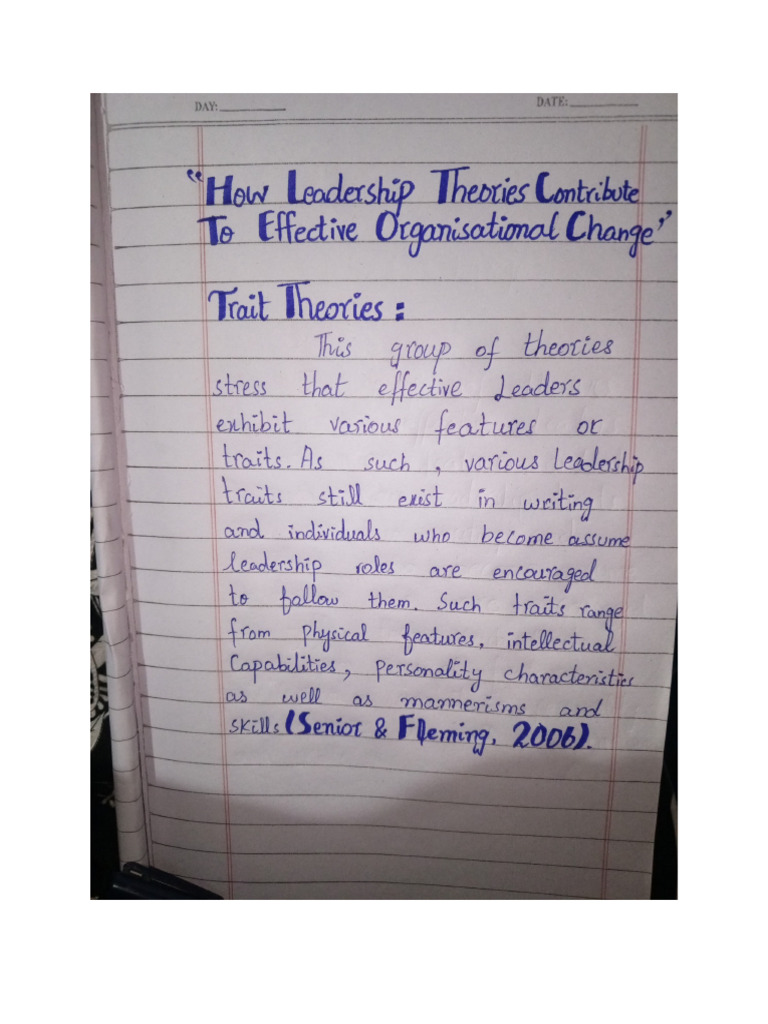 DAY:
DATE:
“How Leadership Theories Contribute
To Effective Organisational Change”
Trait Theories:
This group of theories
stress that effective Leaders
exhibit various features or
traits. As such, various Leadership
traits still exist in writing
and individuals who become assume
leadership roles are encouraged
to follow them. Such traits range
from physical features, intellectual
Capabilities, personality characteristics
as well as mannerisms and
skills (Senior & Fleming, 2006).